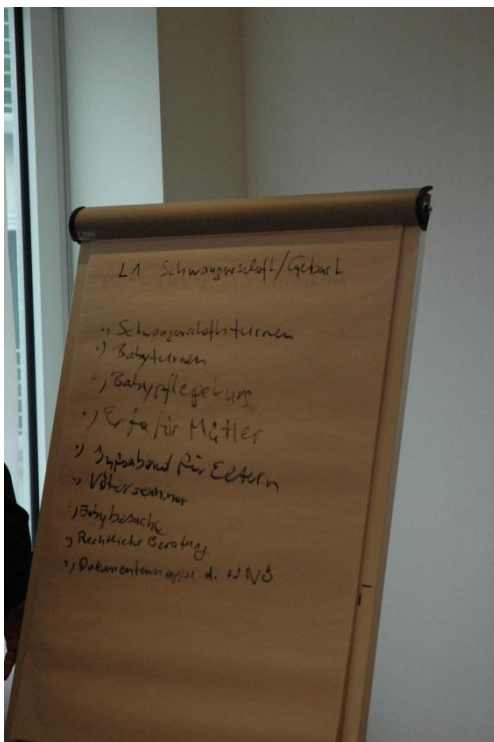 L1 Schwangerschaft/Geburt
·) Schwangerschaftsturnen
·) Babyturnen
·) Babypflegekurs
·) Erfa für Mütter
·) Infoabend für Eltern
·) Väterseminar
·) Babybesuche
·) Rechtliche Beratung
·) Dokumentenmappe d.